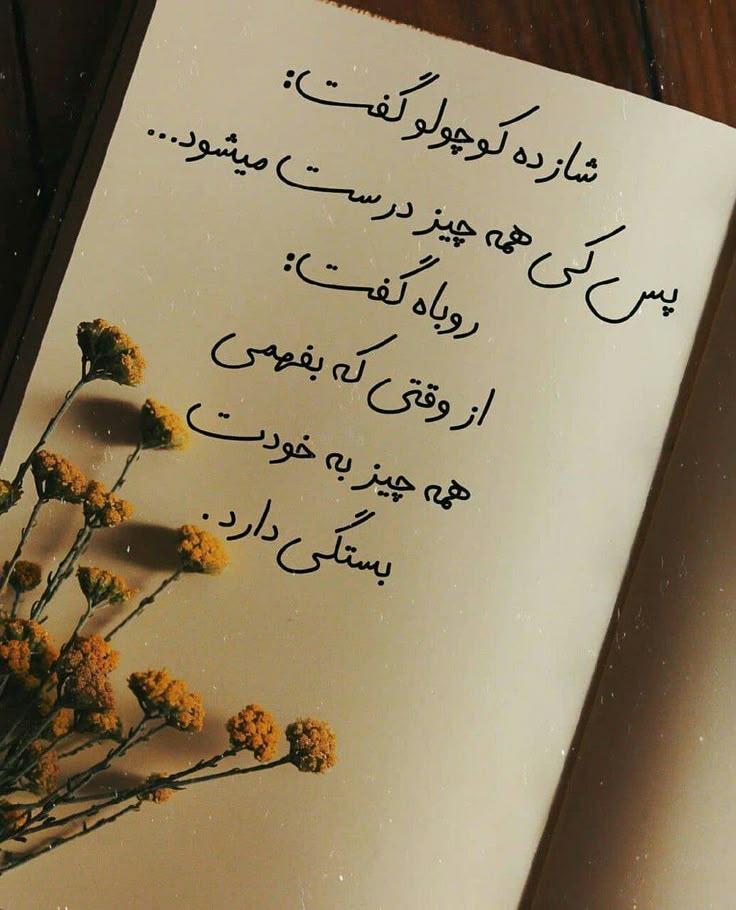 شازده کوچولو گفت:
پس کی همه چیز درست میشود...
روباه گفت:
از وقتی که بفهمی
همه چیز به خودت
بستگی دارد.